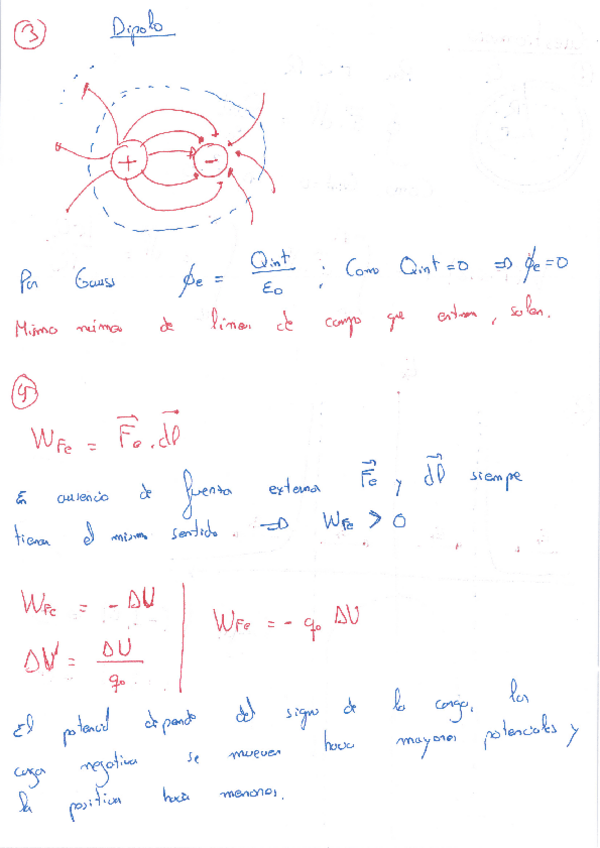 3 Dipolo
+ -
Por Gauss ϕe = Qint / ε0 ; Como Qint = 0 ⇒ ϕe = 0
Mismo número de líneas de campo que entran, salen.
4
WFe = Fe . dl
En ausencia de fuerza externa Fe y dl siempre
tienen el mismo sentido ⇒ WFe > 0
WFe = - ΔU
WFe = - q0 ΔU
ΔV = ΔU / q0
El potencial depende del signo de la carga, las
cargas negativas se mueven hacia mayores potenciales y
la positiva hacia menores.